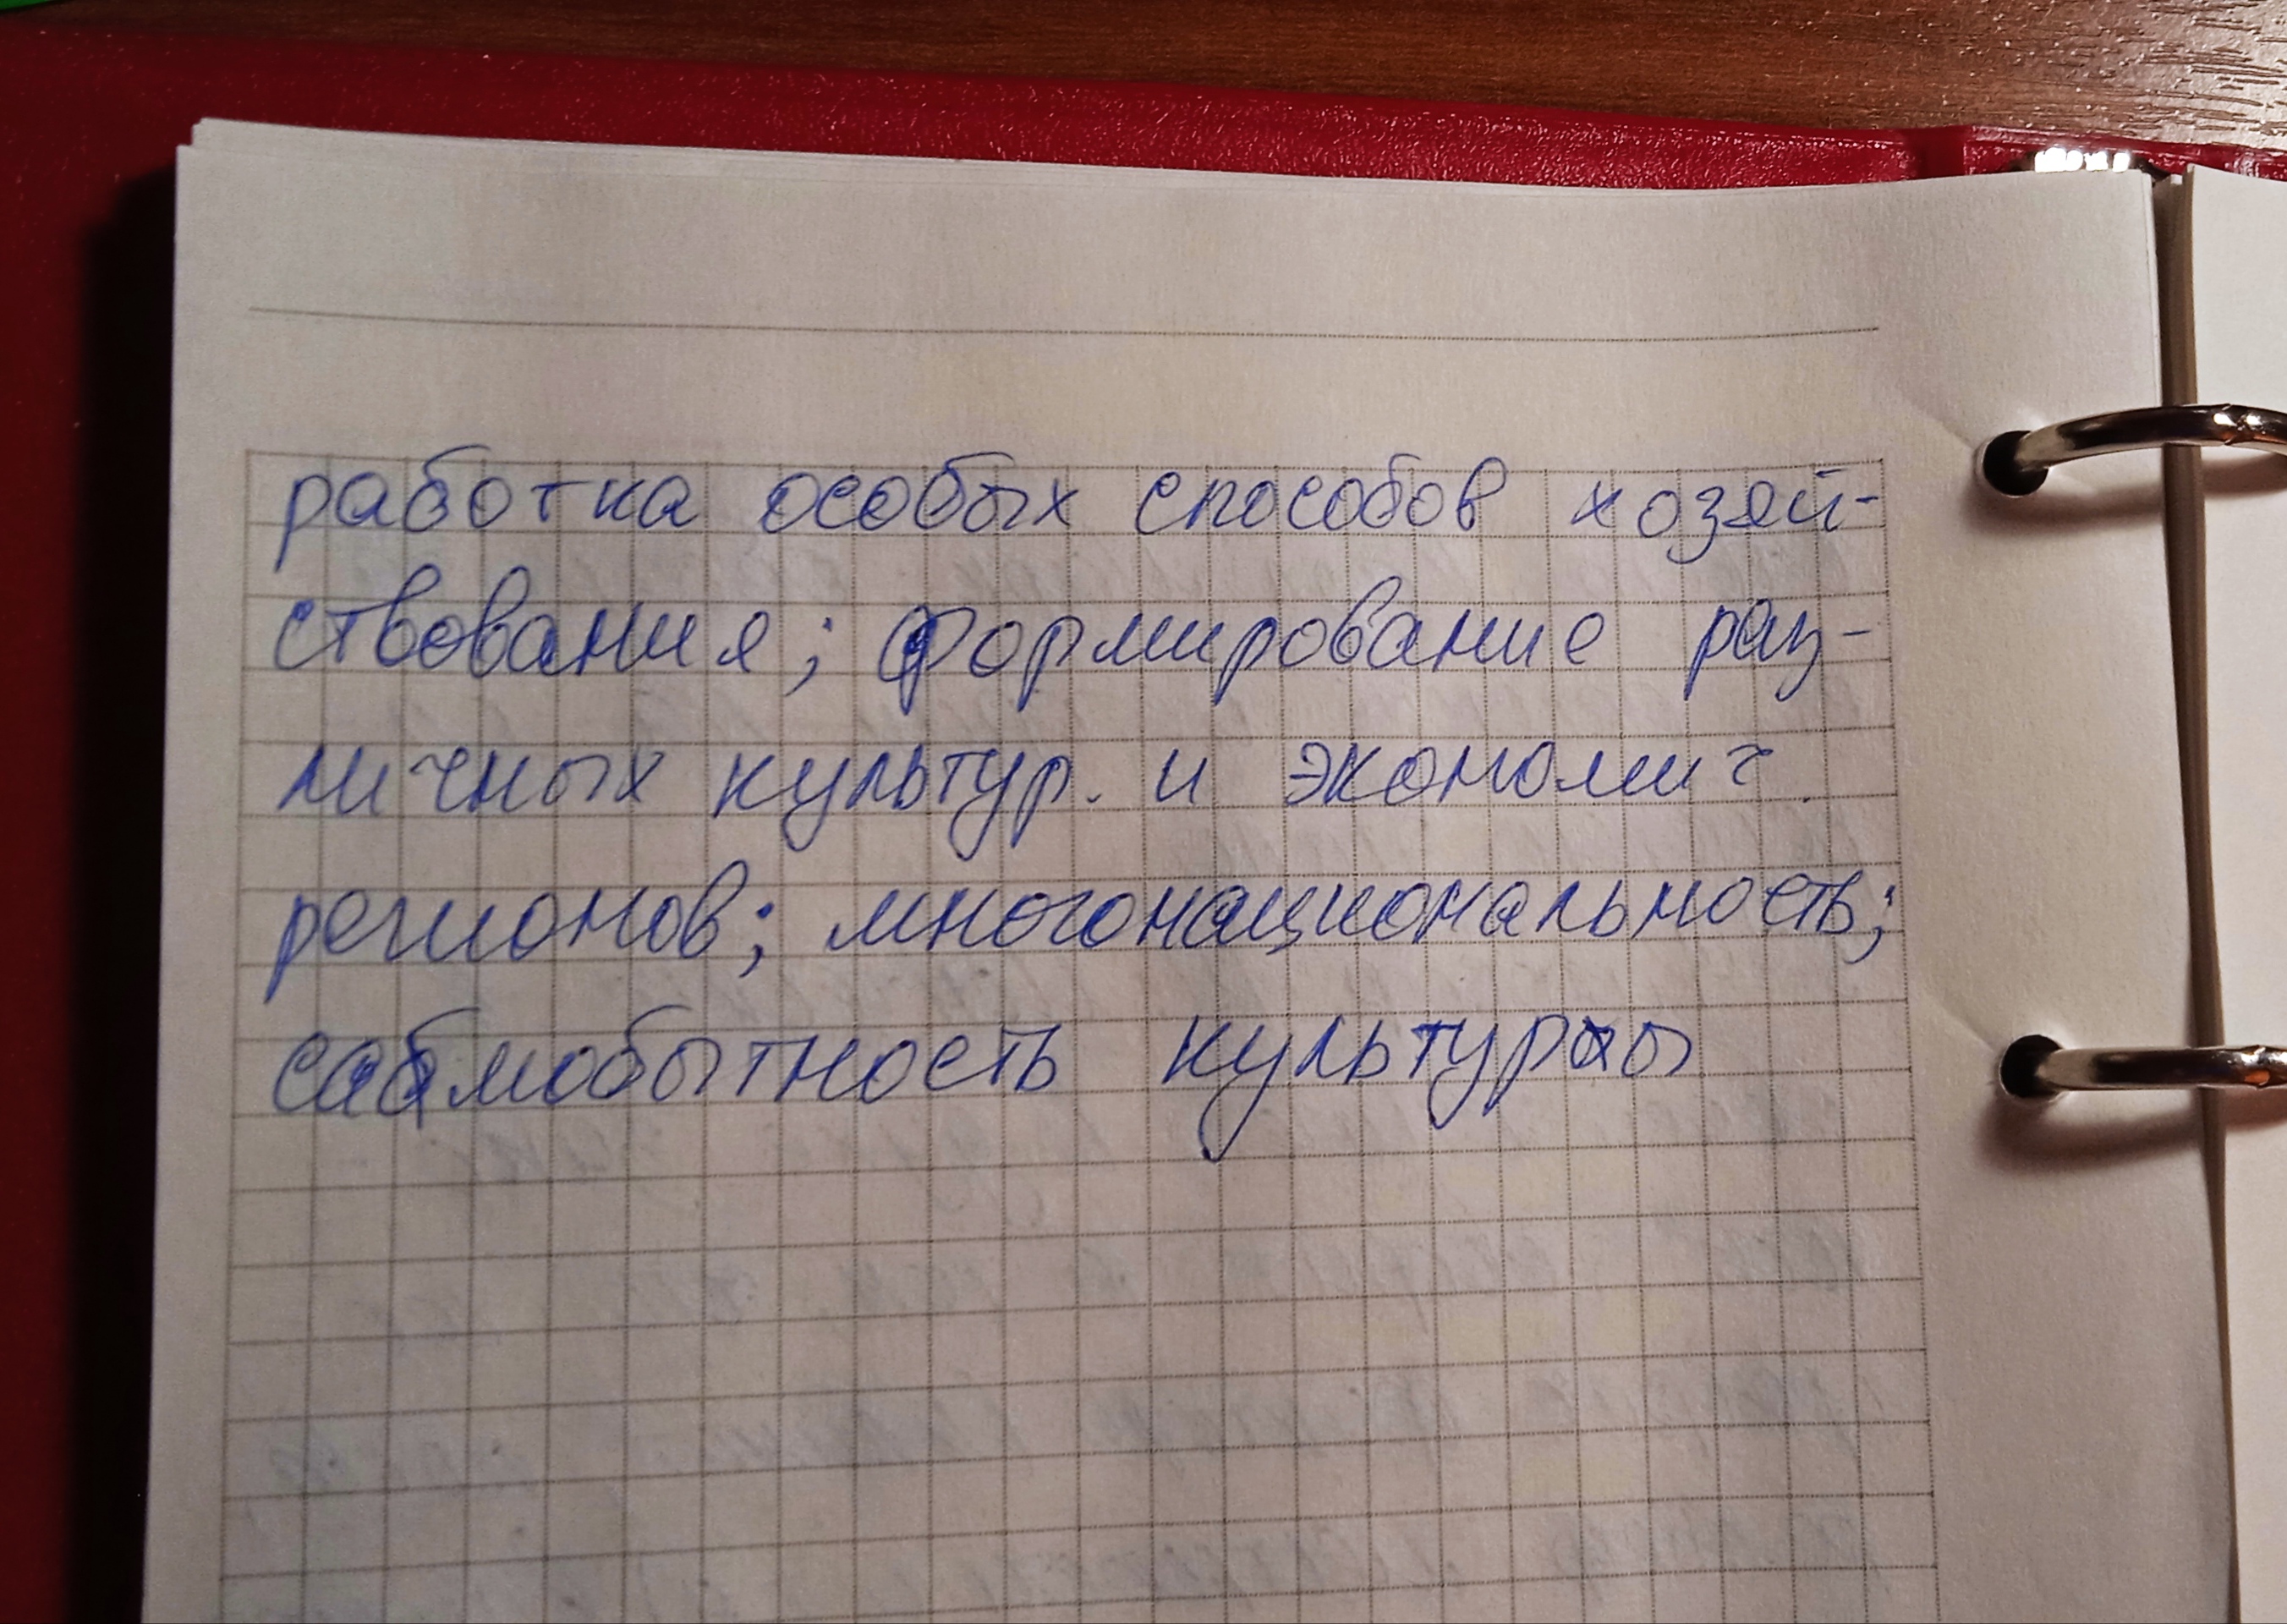 работка особых способов хозяй-
ствования; формирование раз-
личных культур. и экономич.
регионов; многонациональность;
самобытность культуры